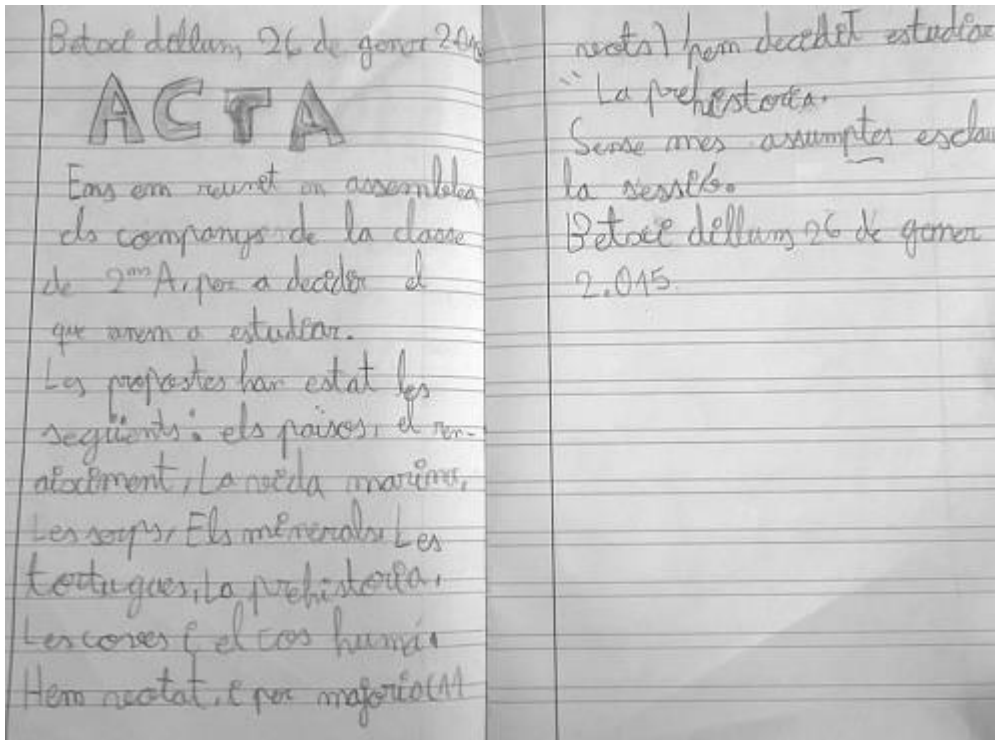 Betxí dilluns 26 de gener 2.01
ACTA
Ens em reunit en assemblea
els companys de la classe
de 2on A, per a decidir el
que anem a estudiar.
Les propostes han estat les
següents: els països, el ren-
aiximent, La vida marina,
Les serps, Els minerals, Les
tortugues, La prehistoria,
Les coves i el cos humà.
Hem votat, i per majoria (11
vots) hem decidit estudiar
"La prehistoria.
Sense mes assumptes
la sessió.
Betxí dilluns 26 de gener
2.015